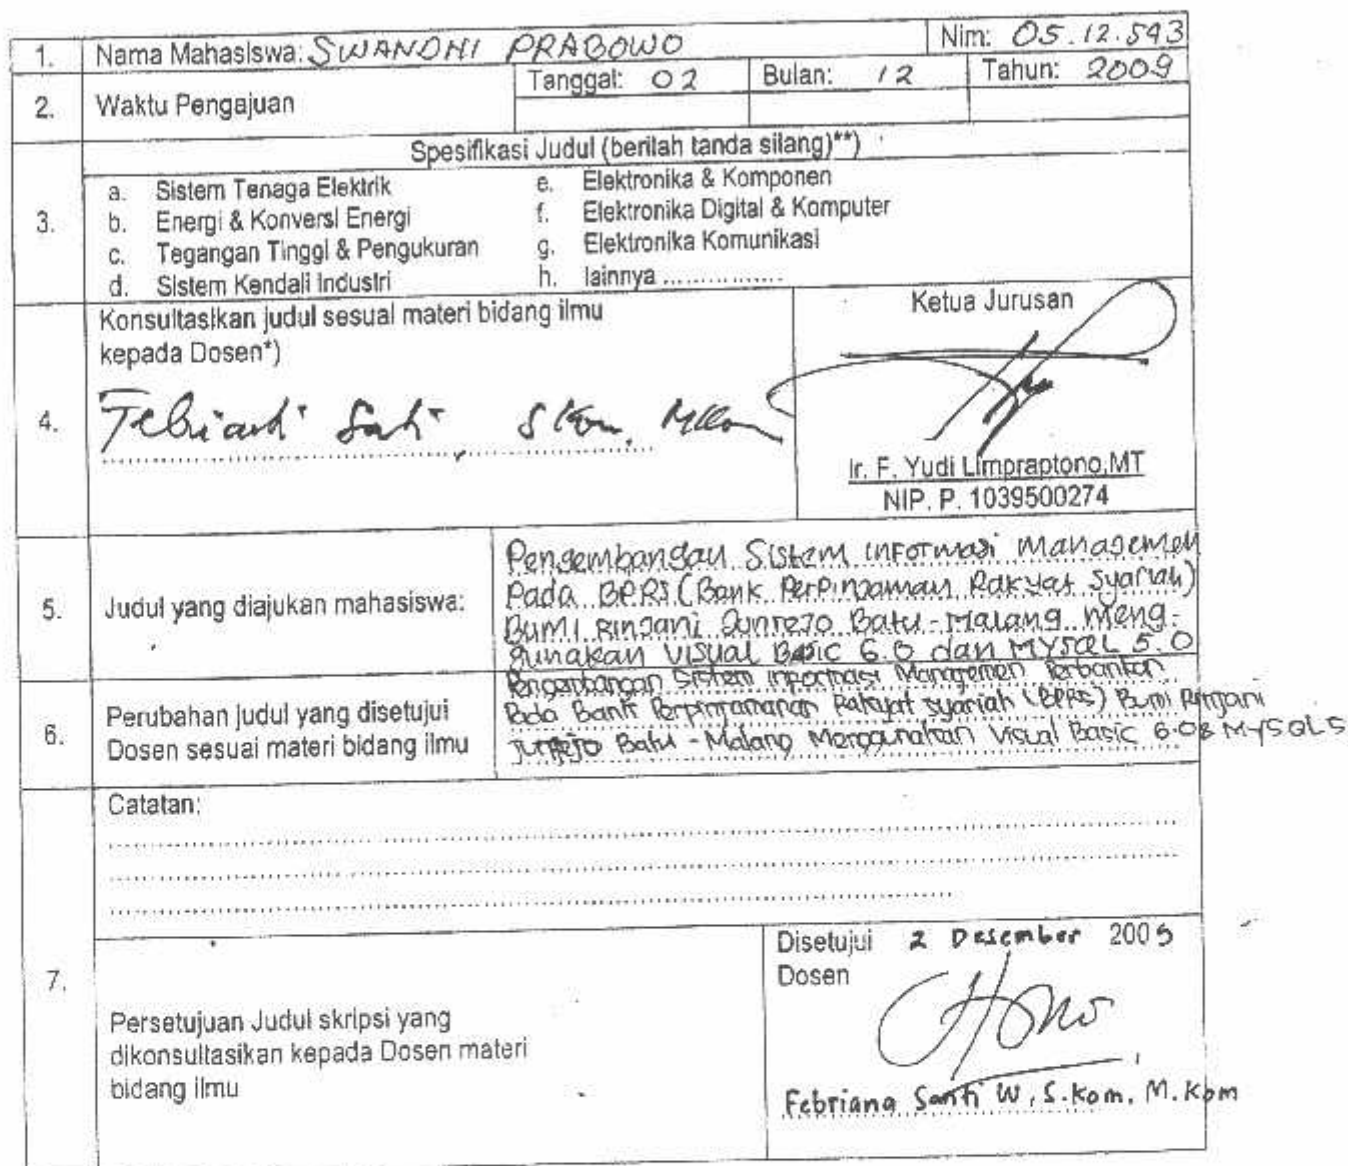 1. Nama Mahasiswa: SWANDHI PRABOWO Nim: 05.12.593
2. Waktu Pengajuan Tanggal: 02 Bulan: 12 Tahun: 2009
Spesifikasi Judul (berilah tanda silang)**)
3.
a. Sistem Tenaga Elektrik e. Elektronika & Komponen
b. Energi & Konversi Energi f. Elektronika Digital & Komputer
c. Tegangan Tinggi & Pengukuran g. Elektronika Komunikasi
d. Sistem Kendali Industri h. lainnya ................
4.
Konsultasikan judul sesuai materi bidang ilmu
kepada Dosen*)
Febriana Santi, S Kom, MKom
Ketua Jurusan
Ir. F. Yudi Limpraptono,MT
NIP. P. 1039500274
5. Judul yang diajukan mahasiswa:
Pengembangan Sistem Informasi Managemen
Pada BPRS (Bank Perpinjaman Rakyat Syariah)
Bumi Rinjani Junrejo Batu - Malang Meng-
gunakan Visual Basic 6.0 dan MYSQL 5.0
6. Perubahan judul yang disetujui
Dosen sesuai materi bidang ilmu
Pengembangan Sistem Informasi Managemen Perbankan
Pada Bank Perpinjamanan Rakyat Syariah (BPRS) Bumi Rinjani
Junrejo Batu - Malang Menggunakan Visual Basic 6.0 & MYSQL5
7.
Catatan:
Persetujuan Judul skripsi yang
dikonsultasikan kepada Dosen materi
bidang ilmu
Disetujui 2 Desember 2009
Dosen
Febriana Santi W, S.Kom, M.Kom